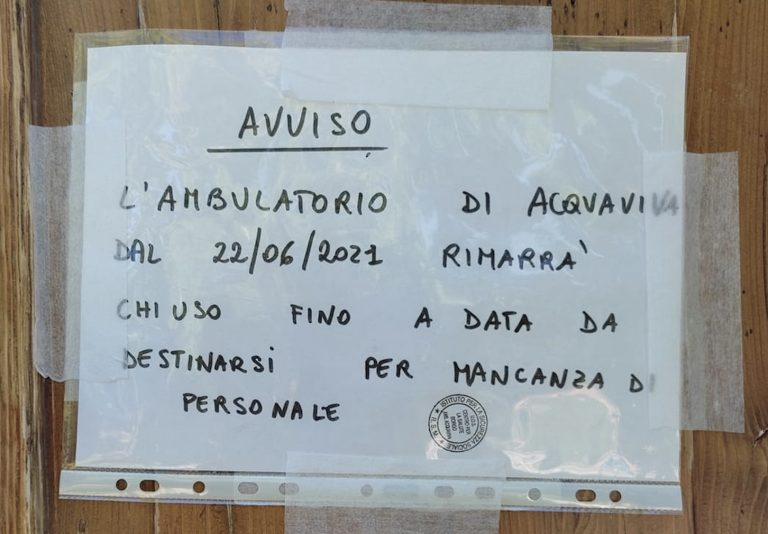 AVVISO
L'AMBULATORIO DI ACQUAVIVA
DAL 22/06/2021 RIMARRA'
CHIUSO FINO A DATA DA
DESTINARSI PER MANCANZA DI
PERSONALE
ISTITUTO PER LA SICUREZZA SOCIALE
R.S.M.